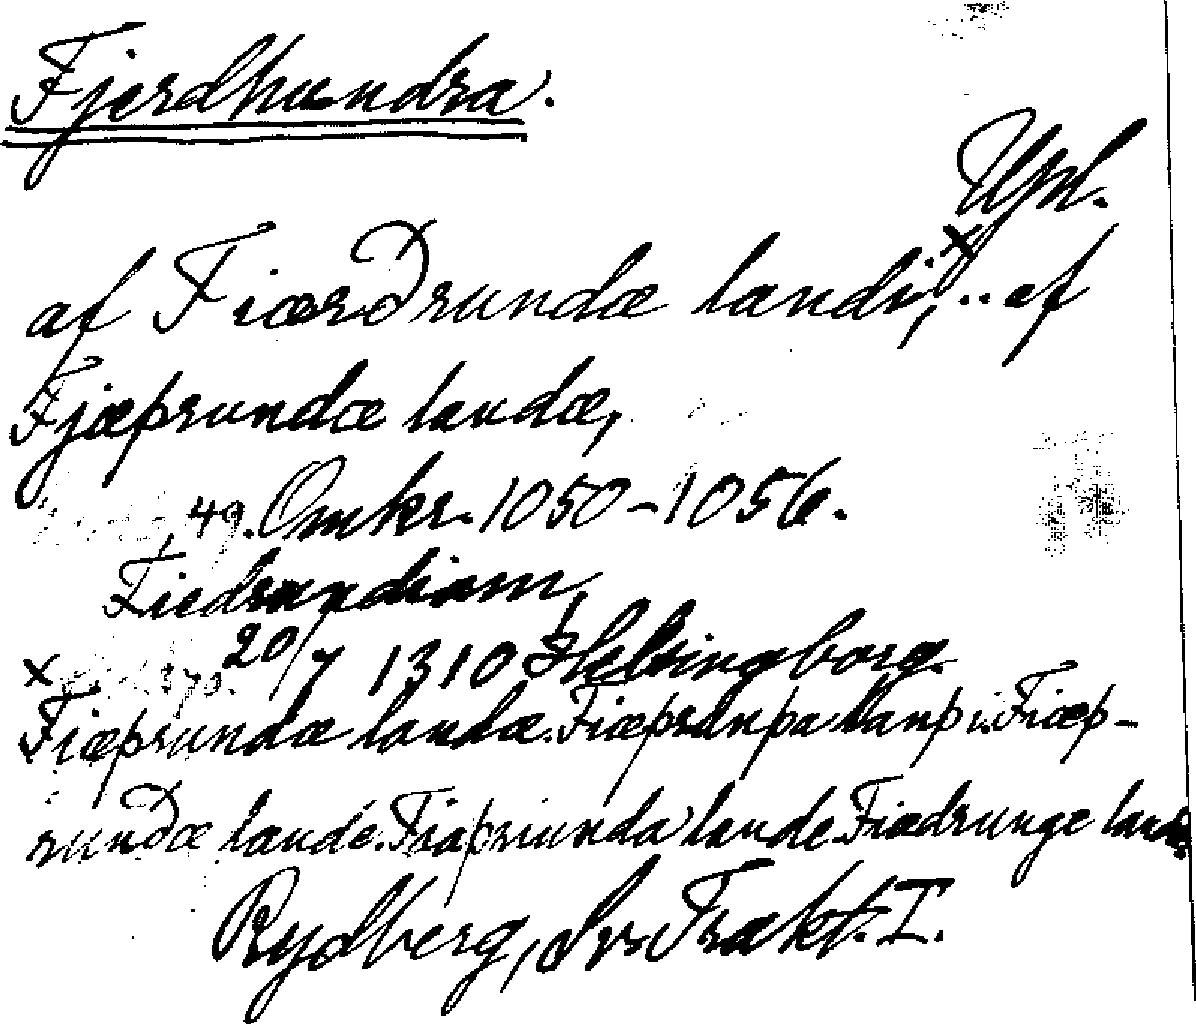 Fjerdhundra.
Upl.
af FiærDrundæ landi,ˣ .. af
Fjæþrundæ landæ,
49. Omkr. 1050-1056.
Fiedrundiam,
x 20/7 1310 Helsingborg.
Fiæþrundæ landæ. Fiæþrunþa lanþ i. Fiæþ-
runDæ lande. Fiaþriunda lande. Fiædrunge land.
Rydberg, Sv. Trakt. I.